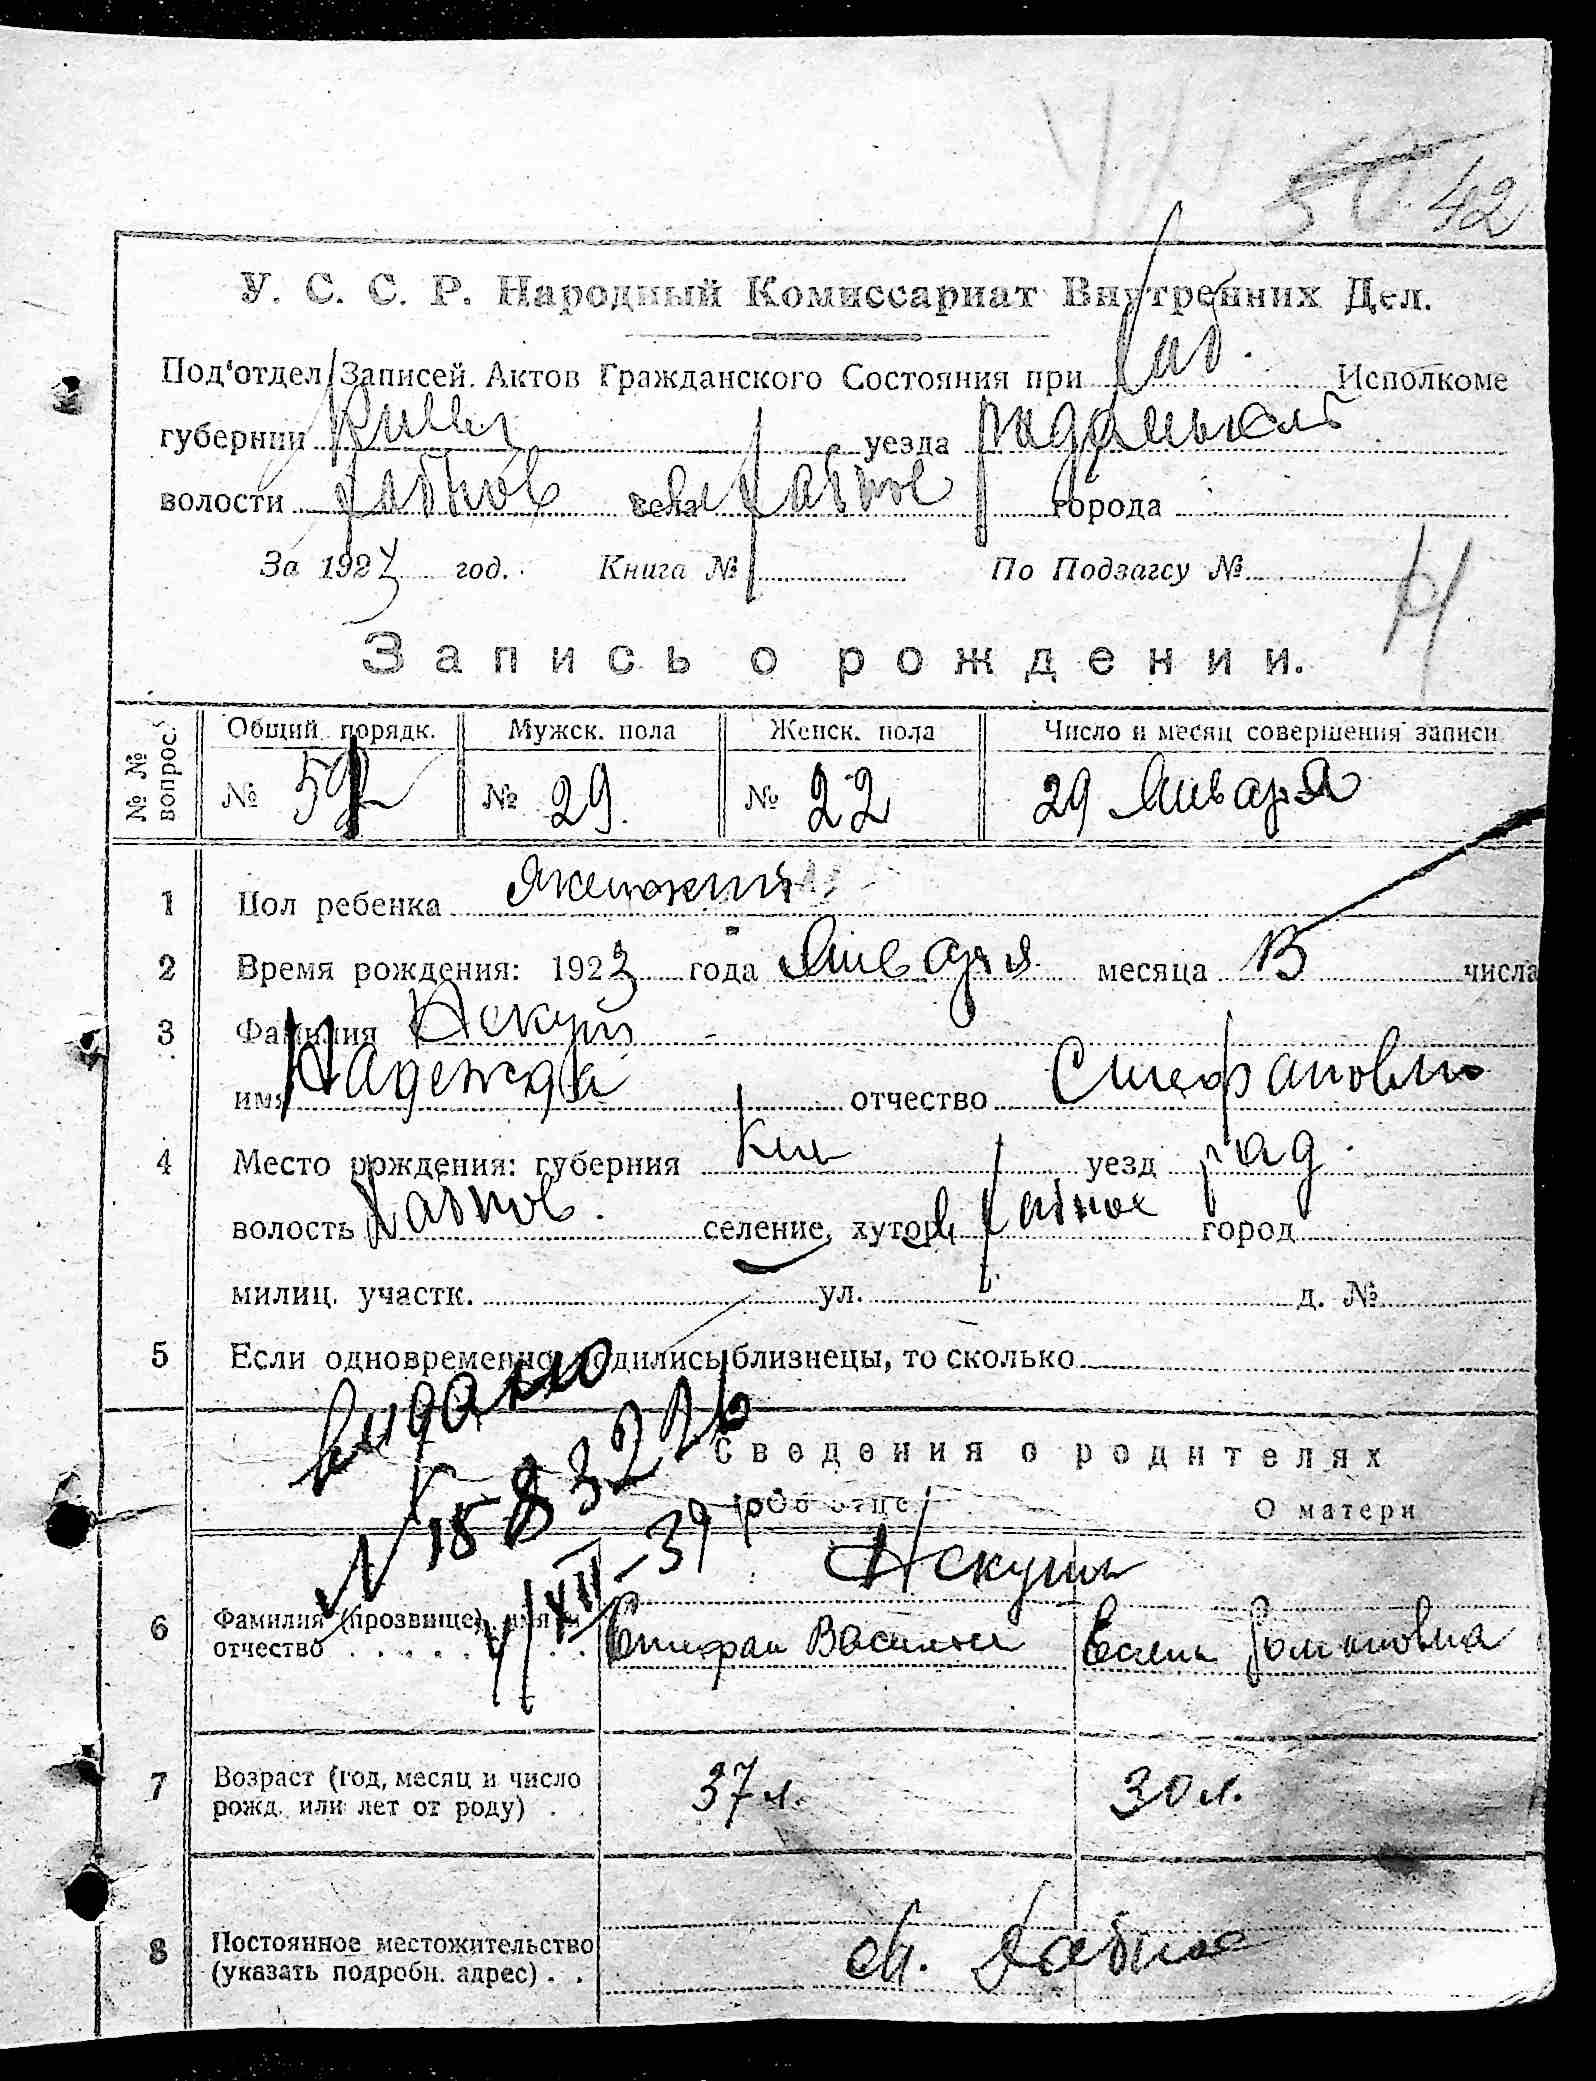 50 42
У. С. С. Р. Народный Комиссариат Внутренних Дел.
Под'отдел Записей Актов Гражданского Состояния при Хаб. Исполкоме
губернии Киевск уезда Радомысльск
волости Хабнов села Хабное города
За 1923 год. Книга № По Подзагсу №
Запись о рождении.
№ № вопрос. Общий порядк. Мужск. пола Женск. пола Число и месяц совершения записи
№ 51 № 29. № 22 29 Января
1 Пол ребенка женский
2 Время рождения: 1923 года Января месяца 15 числа
3 Фамилия
имя Надежда отчество Стефановна
4 Место рождения: губерния Киев уезд Рад.
волость Хабнов. селение, хутор м Хабное город
милиц. участк. ул. д. №
5 Если одновременно родились близнецы, то сколько
видано
Сведения о родителях
Об отце О матери
№
VII–39 р
6 Фамилия (прозвище), имя и
отчество . . . . . Стефан Васильев Елена Романовна
7 Возраст (год, месяц и число
рожд. или лет от роду) . . 37 л. 30 л.
8 Постоянное местожительство
(указать подробн. адрес) . . м. Хабное